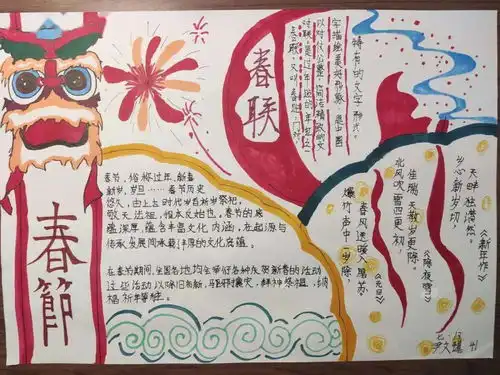 春節
春联
春联,又叫"春贴"、门对、
对联,是过年所贴的年红之一
以对仗工整、简洁精巧的文
字描绘美好形象,是中国
特有的文字形式。
春节,俗称过年,新春
新岁,岁旦……春节历史
悠久,由上古时代岁首祈岁祭祀,
敬天法祖,报本反始也。春节的底
蕴深厚,蕴含丰富文化内涵,在起源与
传承发展同承载了丰厚的文化底蕴。
在春节期间,全国各地均会举行各种庆贺新春的活动
这些活动以除旧布新,驱邪攘灾,拜神祭祖,纳
福祈年等等。
天畔独潸然。
乡心新岁切,
《新年作》
佳瑞天教岁更除。
北风吹雪四更初,
《除夜雪》
春风送暖入屠苏
爆竹声中一岁除,
《元日》